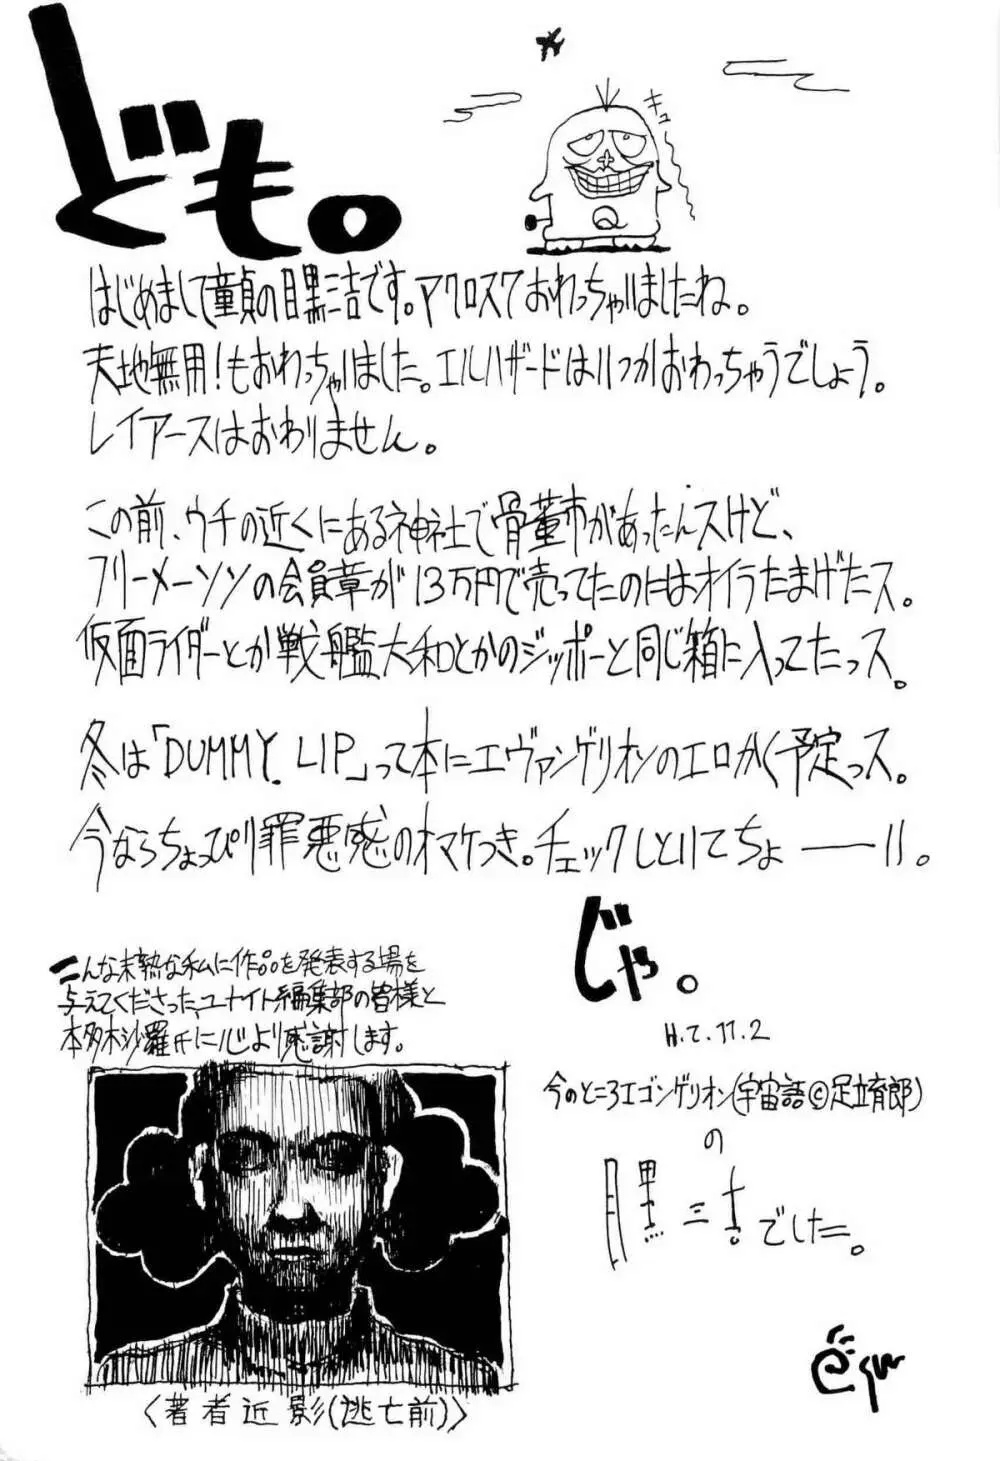 ども。
キュ
Q
はじめまして童貞の目黒三吉です。マクロス7おわっちゃいましたね。
天地無用!もおわっちゃいました。エルハザードはいつかおわっちゃうでしょう。
レイアースはおわりません。
この前、ウチの近くにある神社で骨董市があったんスけど、
フリーメーソンの会員章が13万円で売ってたのにはオイラたまげたス。
仮面ライダーとか戦艦大和とかのジッポーと同じ箱に入ってたっス。
冬は「DUMMY. LIP」って本にエヴァンゲリオンのエロかく予定っス。
今ならちょっぴり罪悪感のオマケつき。チェックしといてちょーーーい。
じゃ。
H.7.11.2
今のところエゴンゲリオン(宇宙語©足立育郎)
の
目黒三吉でした。
こんな未熟な私に作品を発表する場を
与えてくださった、ユナイト編集部の皆様と
本多木沙羅氏に心より感謝します。
〈著者近影(逃亡前)〉